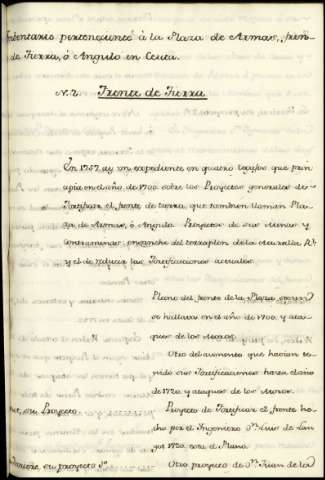 Ynbentario perteneciente à la Plaza de Armas, fren-
de Tierra, ò Angulo en Ceuta.
N. 2. Frente de Tierra
En 1757. ay un expediente en quatro legajos que prin
apia en el año de 1700 sobre los Proyectos generales de
Fortificar el frente de tierra, que tambien llaman Pla-
za de Armas, ò Angulo. Proyectos de sus Minas y
Contraminas: ensanche del terraplen de la Muralla Rl.
y el de reducir las Fortificaciones actuales.
Plano del frente de la Plaza, segun
se hallava en el año de 1700, y ata-
ques de los Moros.
Otro del aumento que hacian te-
nido sus Fortificaciones hasta el año
de 1720, y ataques de los Moros.
su Proyecto.
Proyecto de Fortificar el frente he-
cho por el Ingeniero Dn. Luis de Lan
got 1720, con el Plano.
su proyecto
Otro proyecto de Dn. Juan de la